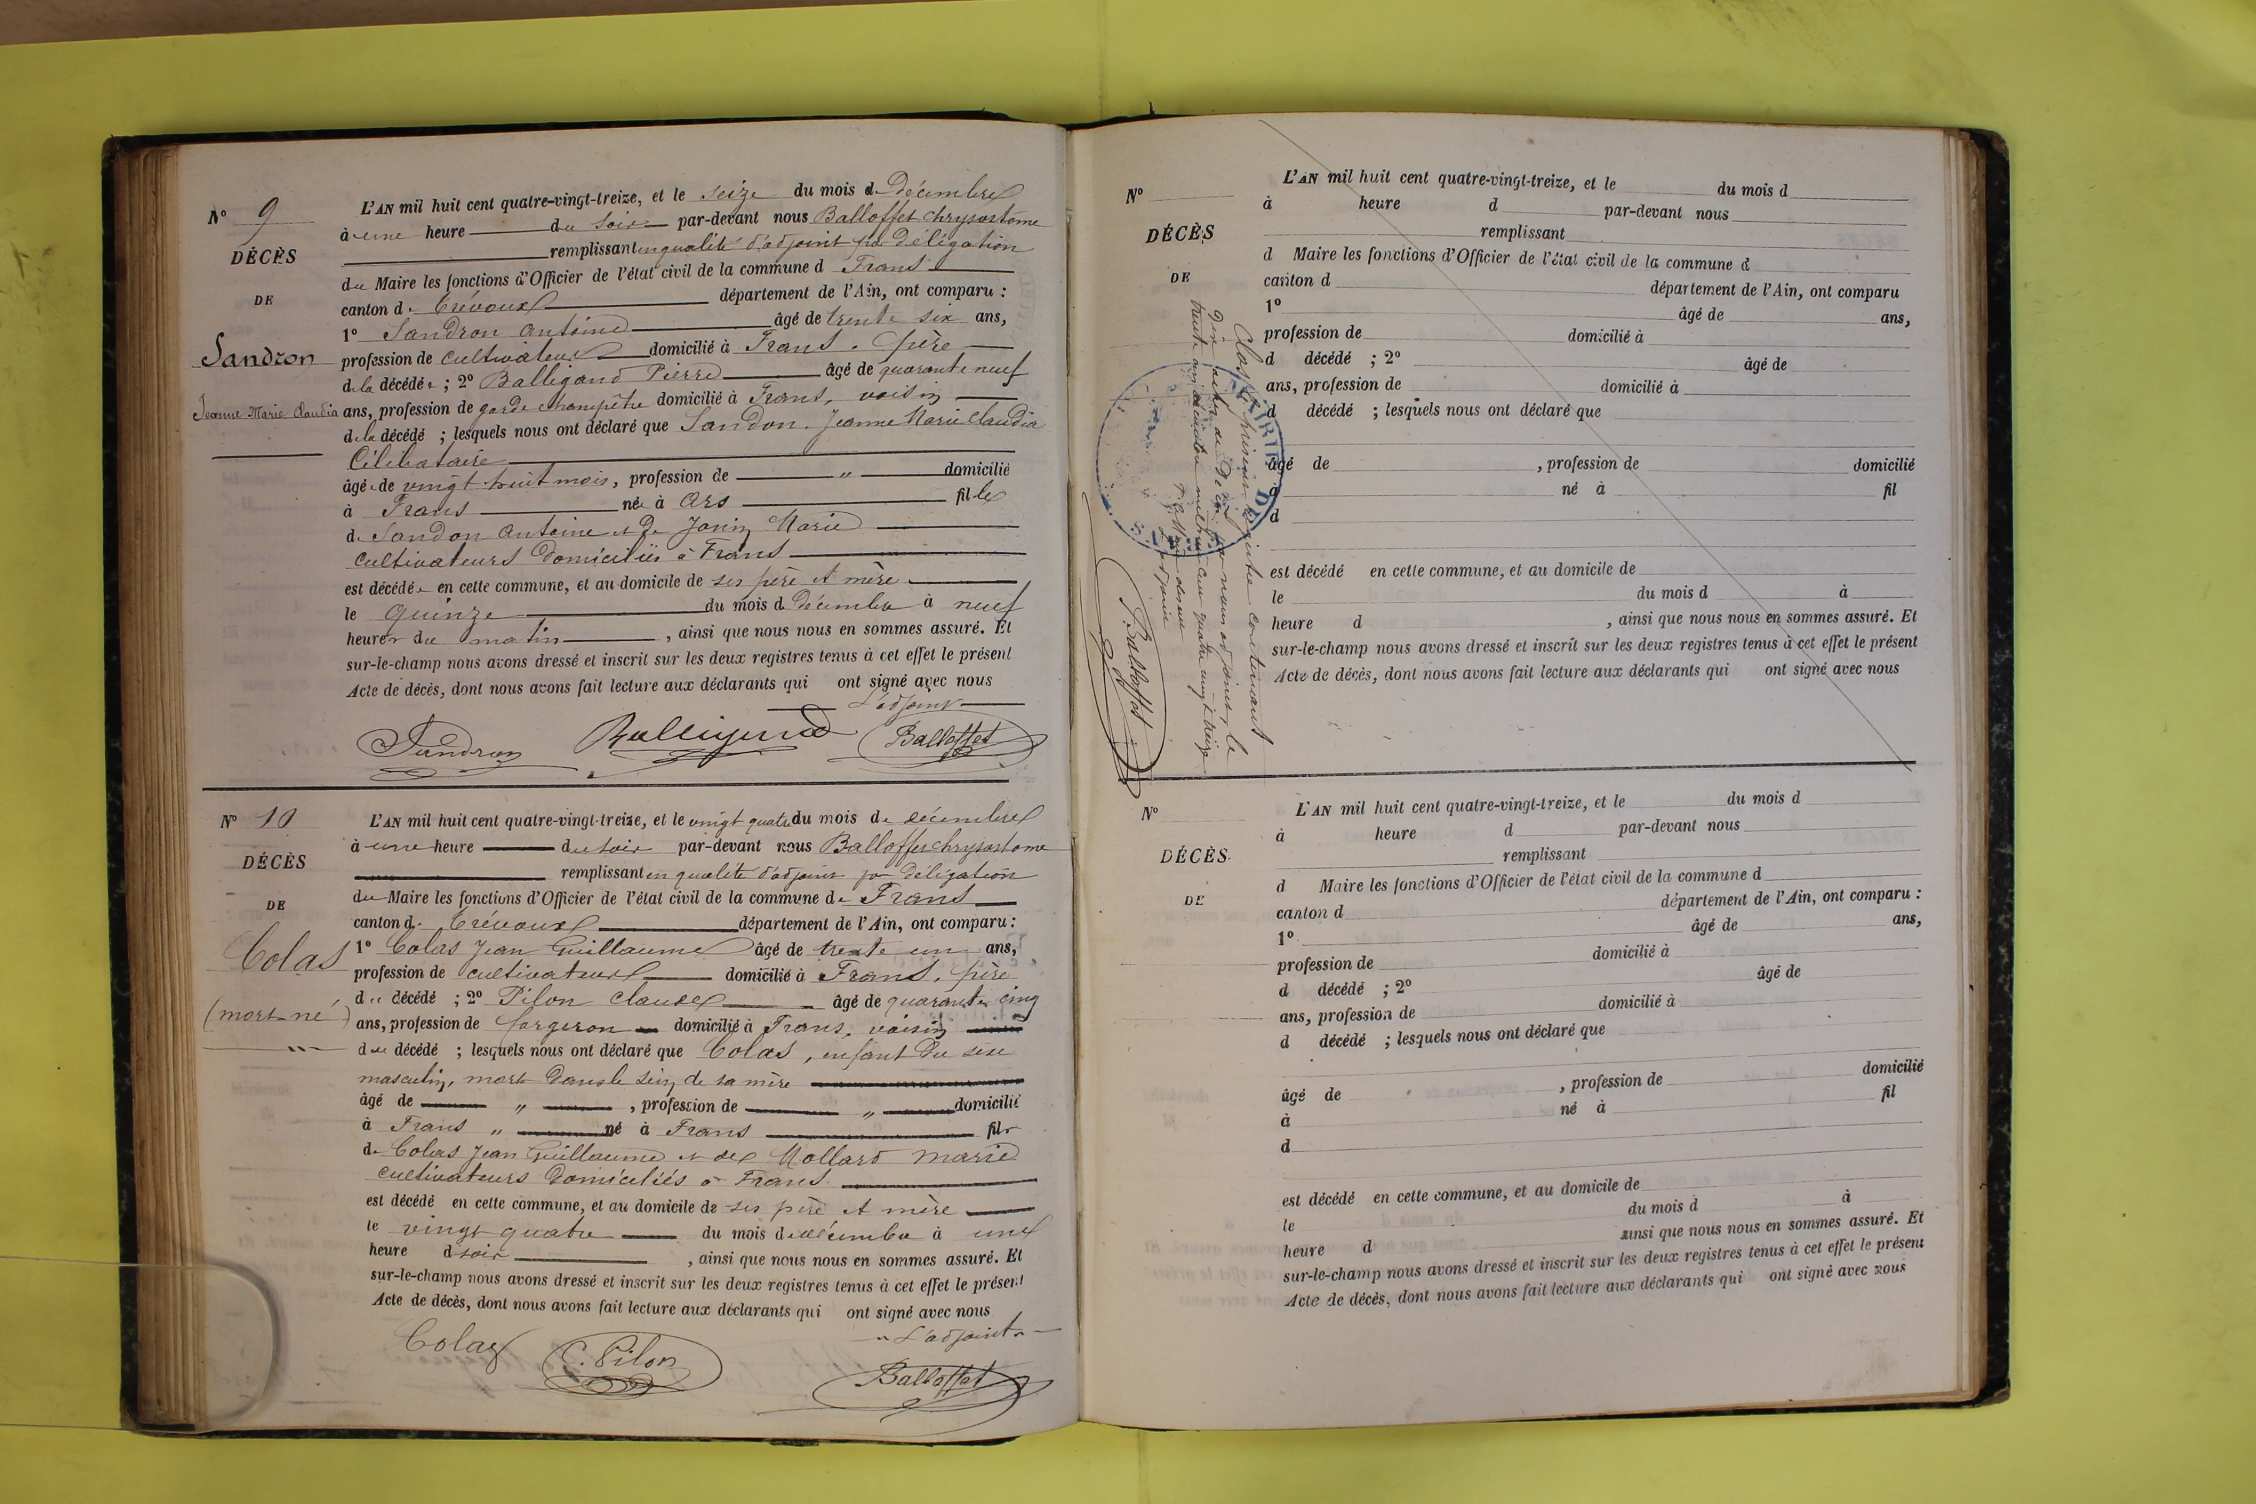 N° 9
DÉCÈS
DE
Sandron
Jeanne Marie Claudia
L'AN mil huit cent quatre-vingt-treize, et le seize du mois de Décembre
à une heure du soir par-devant nous Balloffet Chrysostome
remplissant en qualité d'adjoint par Délégation
du Maire les fonctions d'Officier de l'état civil de la commune d Frans
canton de Trévoux département de l'Ain, ont comparu :
1° Sandron Antoine âgé de trente six ans,
profession de cultivateur domicilié à Frans. père
de la décédée ; 2° Balligand Pierre âgé de quarante neuf
ans, profession de garde champêtre domicilié à Frans, voisin
de la décédé ; lesquels nous ont déclaré que Sandon. Jeanne Marie Claudia
Célibataire
âgée de vingt huit mois, profession de " domicilié
à Frans née à Ars fille
de Sandon Antoine et de Janin Marie
cultivateurs domiciliés à Frans
est décédée en cette commune, et au domicile de ses père et mère
le quinze du mois de Décembre à neuf
heures du matin, ainsi que nous nous en sommes assuré. Et
sur-le-champ nous avons dressé et inscrit sur les deux registres tenus à cet effet le présent
Acte de décès, dont nous avons fait lecture aux déclarants qui ont signé avec nous
L'adjoint
Sandron Balligand Balloffet
N° 10
DÉCÈS
DE
Colas
(mort né)
L'AN mil huit cent quatre-vingt-treize, et le vingt quatre du mois de décembre
à une heure du soir par-devant nous Balloffet Chrysostome
remplissant en qualité d'adjoint par délégation
du Maire les fonctions d'Officier de l'état civil de la commune de Frans
canton de Trévoux département de l'Ain, ont comparu :
1° Colas Jean Guillaume âgé de trente un ans,
profession de cultivateur domicilié à Frans, père
du décédé ; 2° Pilon Claude âgé de quarante cinq
ans, profession de forgeron domicilié à Frans, voisin
du décédé ; lesquels nous ont déclaré que Colas, enfant du sexe
masculin, mort dans le sein de sa mère
âgé de " , profession de " domicilié
à Frans " né à Frans fils
de Colas Jean Guillaume et de Mollard Marie
cultivateurs domiciliés à Frans.
est décédé en cette commune, et au domicile de ses père et mère
le vingt quatre du mois de décembre à une
heure d soir , ainsi que nous nous en sommes assuré. Et
sur-le-champ nous avons dressé et inscrit sur les deux registres tenus à cet effet le présent
Acte de décès, dont nous avons fait lecture aux déclarants qui ont signé avec nous
L'adjoint
Colas C. Pilon Balloffet
N°
DÉCÈS
DE
Clos le présent registre contenant
dix actes de Décès par nous adjoint, le
trente un décembre mil huit cent quatre vingt treize
Balloffet
L'AN mil huit cent quatre-vingt-treize, et le du mois d
à heure d par-devant nous
remplissant
d Maire les fonctions d'Officier de l'état civil de la commune d
canton d département de l'Ain, ont comparu
1° âgé de ans,
profession de domicilié à
d décédé ; 2° âgé de
ans, profession de domicilié à
d décédé ; lesquels nous ont déclaré que
âgé de , profession de domicilié
à né à fil
d
est décédé en cette commune, et au domicile de
le du mois d à
heure d , ainsi que nous nous en sommes assuré. Et
sur-le-champ nous avons dressé et inscrit sur les deux registres tenus à cet effet le présent
Acte de décès, dont nous avons fait lecture aux déclarants qui ont signé avec nous
N°
DÉCÈS
DE
L'AN mil huit cent quatre-vingt-treize, et le du mois d
à heure d par-devant nous
remplissant
d Maire les fonctions d'Officier de l'état civil de la commune d
canton d département de l'Ain, ont comparu :
1° âgé de ans,
profession de domicilié à
d décédé ; 2° âgé de
ans, profession de domicilié à
d décédé ; lesquels nous ont déclaré que
âgé de , profession de domicilié
à né à fil
d
est décédé en cette commune, et au domicile de
le du mois d à
heure d ainsi que nous nous en sommes assuré. Et
sur-le-champ nous avons dressé et inscrit sur les deux registres tenus à cet effet le présent
Acte de décès, dont nous avons fait lecture aux déclarants qui ont signé avec nous